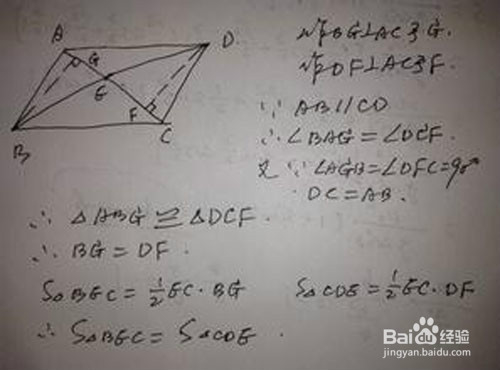 A
D
G
E
F
B
C
作BG⊥AC于G.
作DF⊥AC于F.
∵ AB//CD
∴ ∠BAG=∠DCF.
又∵ ∠AGB=∠DFC=90°
DC=AB.
∴ △ABG≌△DCF.
∴ BG=DF.
S△BEC=½EC·BG S△CDE=½EC·DF
∴ S△BEC=S△CDE.
Baidu经验
jingyan.baidu.com